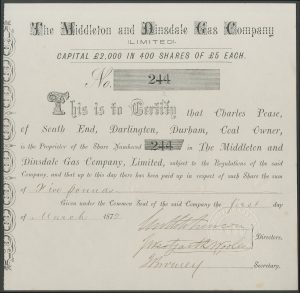 The Middleton and Dinsdale Gas Company
(LIMITED)
CAPITAL £2,000 IN 400 SHARES OF £5 EACH.
No. 244
This is to Certify that Charles Pease,
of South End, Darlington, Durham, Coal Owner,
is the Proprietor of the Share Numbered 244 in The Middleton and
Dinsdale Gas Company, Limited, subject to the Regulations of the said
Company, and that up to this day there has been paid up in respect of such Share the sum
of Five pounds
Given under the Common Seal of the said Company the first day
of March 187
Directors.
Secretary.